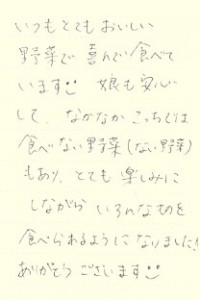 いつもとてもおいしい
野菜で喜んで食べて
います☺ 娘も安心
して、なかなかこっちでは
食べない野菜(ない野菜)
もあり、とても楽しみに
しながら いろんなものを
食べられるようになりました!
ありがとうございます☺